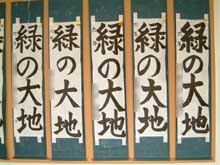 緑の大地
緑の大地
緑の大地
緑の大地
緑の大地